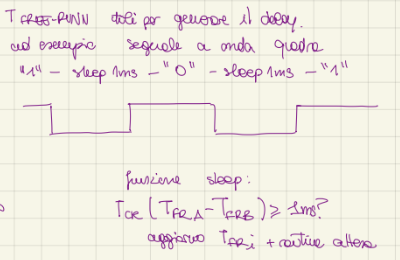 T FREE-RUNN utili per generare il delay.
ad esempio segnale a onda quadra
"1" - sleep 1ms - "0" - sleep 1ms - "1"
funzione sleep:
Tck (TFRA - TFRB) ≥ 1ms?
aggiorno TFRi + routine attesa